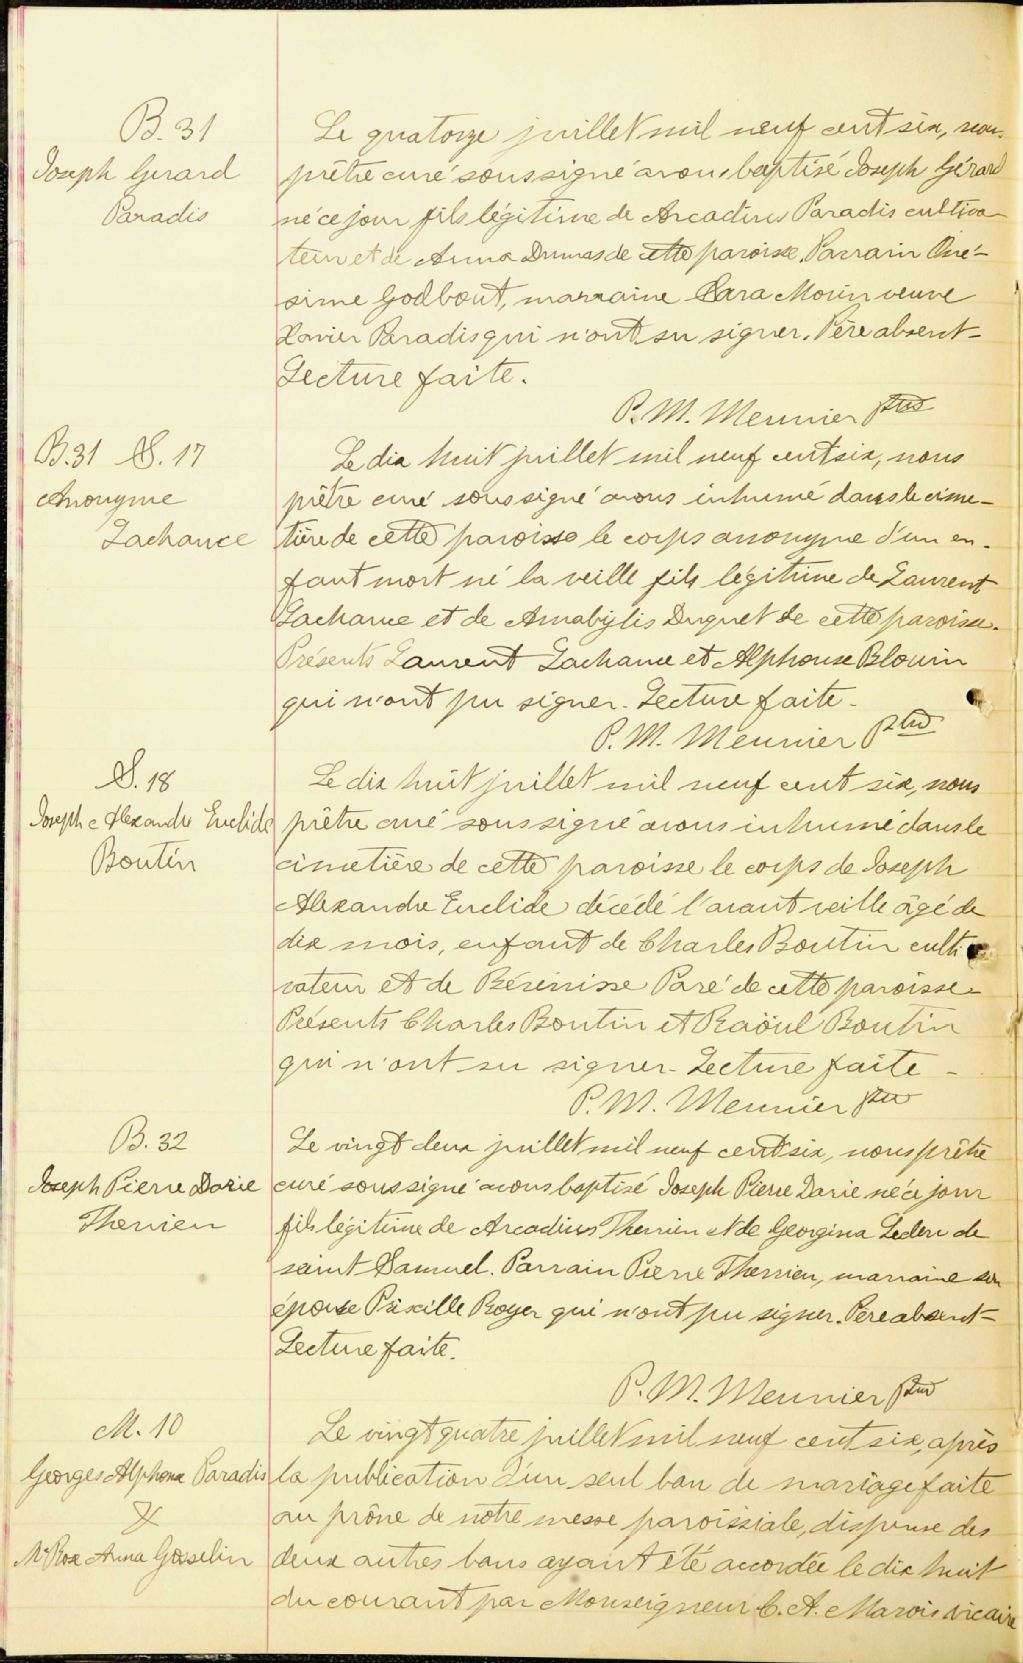 B. 31
Joseph Gérard
Paradis
Le quatorze juillet mil neuf cent six, nous
prêtre curé soussigné avons baptisé Joseph Gérard
né ce jour fils légitime de Arcadius Paradis cultiva-
teur et de Anna Dumas de cette paroisse. Parrain Oné-
sime Godbout, marraine Clara Morin veuve
Xavier Paradis qui n'ont su signer. Père absent-
Lecture faite.
P. M. Meunier ptre
B.31 S. 17
Anonyme
Lachance
Le dix huit juillet mil neuf cent six, nous
prêtre curé soussigné avons inhumé dans le cime-
tière de cette paroisse le corps anonyme d'un en-
fant mort né la veille fils légitime de Laurent
Lachance et de Amabylis Duquet de cette paroisse.
Présents Laurent Lachance et Alphonse Blouin
qui n'ont pu signer. Lecture faite.
P. M. Meunier Ptre
S. 18
Joseph Alexandre Euclide
Boutin
Le dix huit juillet mil neuf cent six, nous
prêtre curé soussigné avons inhumé dans le
cimetière de cette paroisse le corps de Joseph
Alexandre Euclide décédé l'avant veille âgé de
dix mois, enfant de Charles Boutin culti
vateur et de Bérénisse Paré de cette paroisse-
Présents Charles Boutin et Raöul Boutin
qui n'ont su signer- Lecture faite -
P. M. Meunier ptre
B. 32
Joseph Pierre Darie
Therrien
Le vingt deux juillet mil neuf cent six, nous prêtre
curé soussigné avons baptisé Joseph Pierre Darie né ce jour
fils légitime de Arcadius Therrien et de Georgina de
saint Samuel. Parrain Pierre Therrien, marraine son
épouse Priscille Royer qui n'ont pu signer. Père absent-
Lecture faite.
P. M. Meunier Ptre
M. 10
Georges Alphonse Paradis
&
M. Rose Anna Gosselin
Le vingt quatre juillet mil neuf cent six, après
la publication d'un seul ban de mariage faite
au prône de notre messe paroissiale, dispense des
deux autres bans ayant été accordée le dix huit
du courant par Monseigneur C. A. Marois vicaire